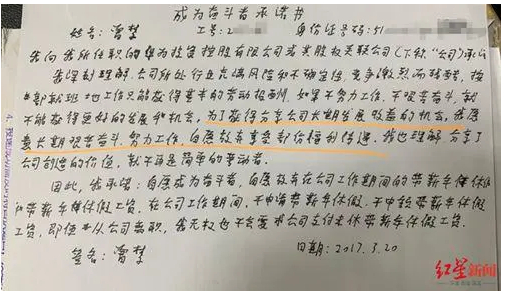 成为奋斗者承诺书
姓名：曾梦 工号：2 身份证号码：51
我向我所任职的华为投资控股有限公司或其股权关联公司（下称“公司”）承诺
我深刻理解，公司所处行业充满风险和不确定性，竞争激烈而残酷，按
部就班地工作只能获得基本的劳动报酬，如果不努力工作，不艰苦奋斗，就
不能获得更好的发展和机会，为了获得分享公司长期发展收益的机会，我愿
意长期艰苦奋斗，努力工作，自愿放弃享受部份福利待遇，我也理解，分享了
公司创造的价值，就不再是简单的劳动者。
因此，我承诺：自愿成为奋斗者，自愿放弃在公司工作期间的带薪年休休假
带薪年休假工资，在公司工作期间，不申请带薪年休假，不申领带薪年休假
工资，即使本人从公司离职，我无权也不会要求公司支付未休带薪年休假工资。
签名：曾梦 日期：2017.3.20
红星新闻